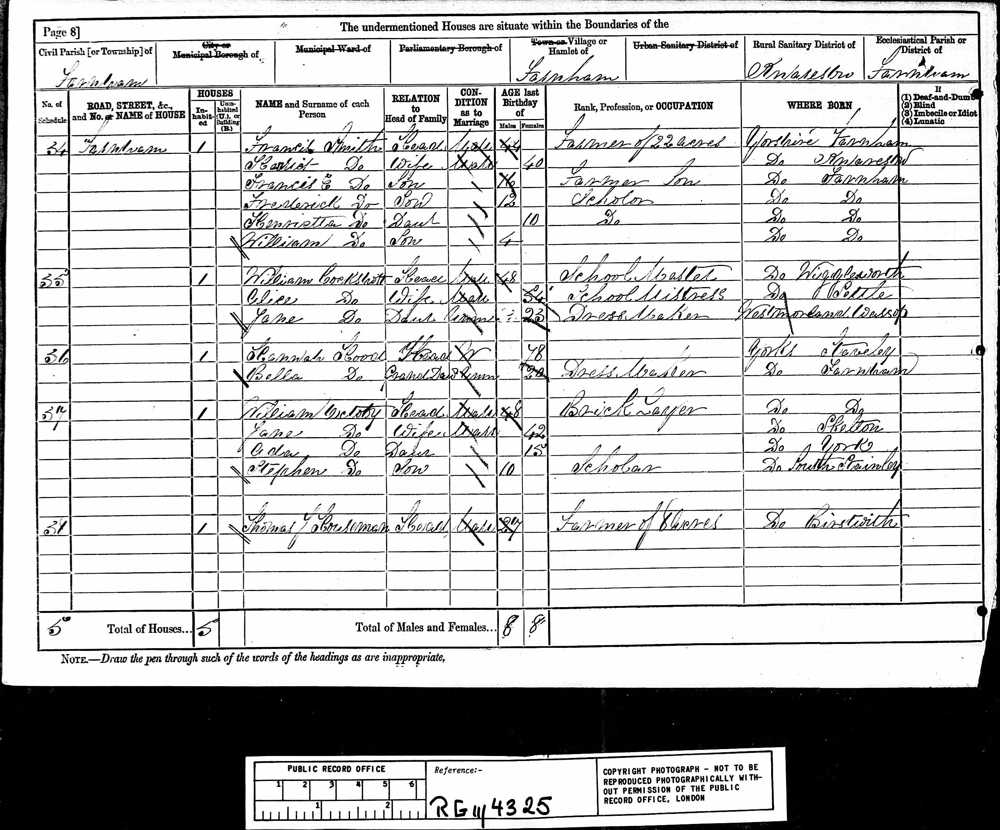 Page 8]
The undermentioned Houses are situate within the Boundaries of the
Civil Parish [or Township] of
City or Municipal Borough of
Municipal Ward of
Parliamentary Borough of
Town or Village or Hamlet of
Urban Sanitary District of
Rural Sanitary District of
Ecclesiastical Parish or District of
Farnham Farnham Knaresbro Farnham
No. of Schedule
ROAD, STREET, &c., and No. or NAME of HOUSE
HOUSES
Inhabited
Uninhabited (U.), or Building (B.)
NAME and Surname of each Person
RELATION to Head of Family
CONDITION as to Marriage
AGE last Birthday of
Males Females
Rank, Profession, or OCCUPATION
WHERE BORN
If
(1) Deaf-and-Dumb
(2) Blind
(3) Imbecile or Idiot
(4) Lunatic
34 Farnham 1 Francis Smith Head 44 Farmer of 22 acres Yorshire Farnham
Do Wife 40 Do Knaresbro
Francis E Do Son 16 Farmer Son Do Farnham
Frederick Do Son 12 Scholor Do Do
Henrietta Do Daut 10 Do Do Do
William Do Son 4 Do Do
35 1 William Cockshott Head 48 School Master Do Wigglesworth
Alice Do Wife 54 School Mistress Do Settle
Jane Do Daut 23 Dress Maker Westmorland
36 1 Hannah Hood Head W 78 Yorks Staveley
Bella Do Grand Da 20 Dress Maker Do Farnham
37 1 William Head 48 Brick Layer Do Do
Jane Do Wife 42 Do Skelton
Ada Do Daur 15 Do York
Stephen Do Son 10 Scholar Do South Stainley
38 1 Thomas Houseman Head 37 Farmer of acres Do Birstwith
5 Total of Houses... 5 Total of Males and Females... 8 8
NOTE.—Draw the pen through such of the words of the headings as are inappropriate.
PUBLIC RECORD OFFICE
1 2 3 4 5 6
1 2
Reference:-
RG 11/4325
COPYRIGHT PHOTOGRAPH - NOT TO BE
REPRODUCED PHOTOGRAPHICALLY WITH-
OUT PERMISSION OF THE PUBLIC
RECORD OFFICE, LONDON